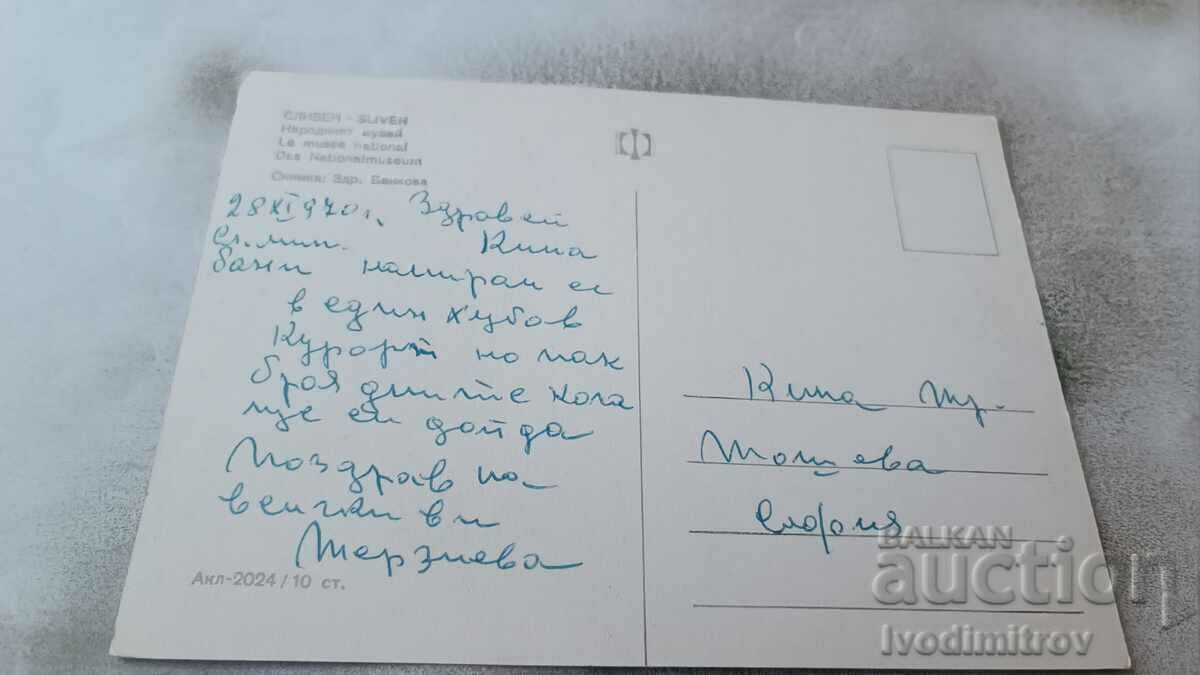 СЛИВЕН - SLIVEN
Народният музей
Le musée national
Das Nationalmuseum
Снимка: Здр. Банкова
28 XI 970 г. Здравей
Сл. мин. Кина
бани намирам се
в един хубов
Курорт но пак
броя дните кога
ще си дойда
Поздрав на
всички ви
Терзиева
Акл-2024/10 ст.
Кина
Тошева
София
BALKAN
auction
Ivodimitrov